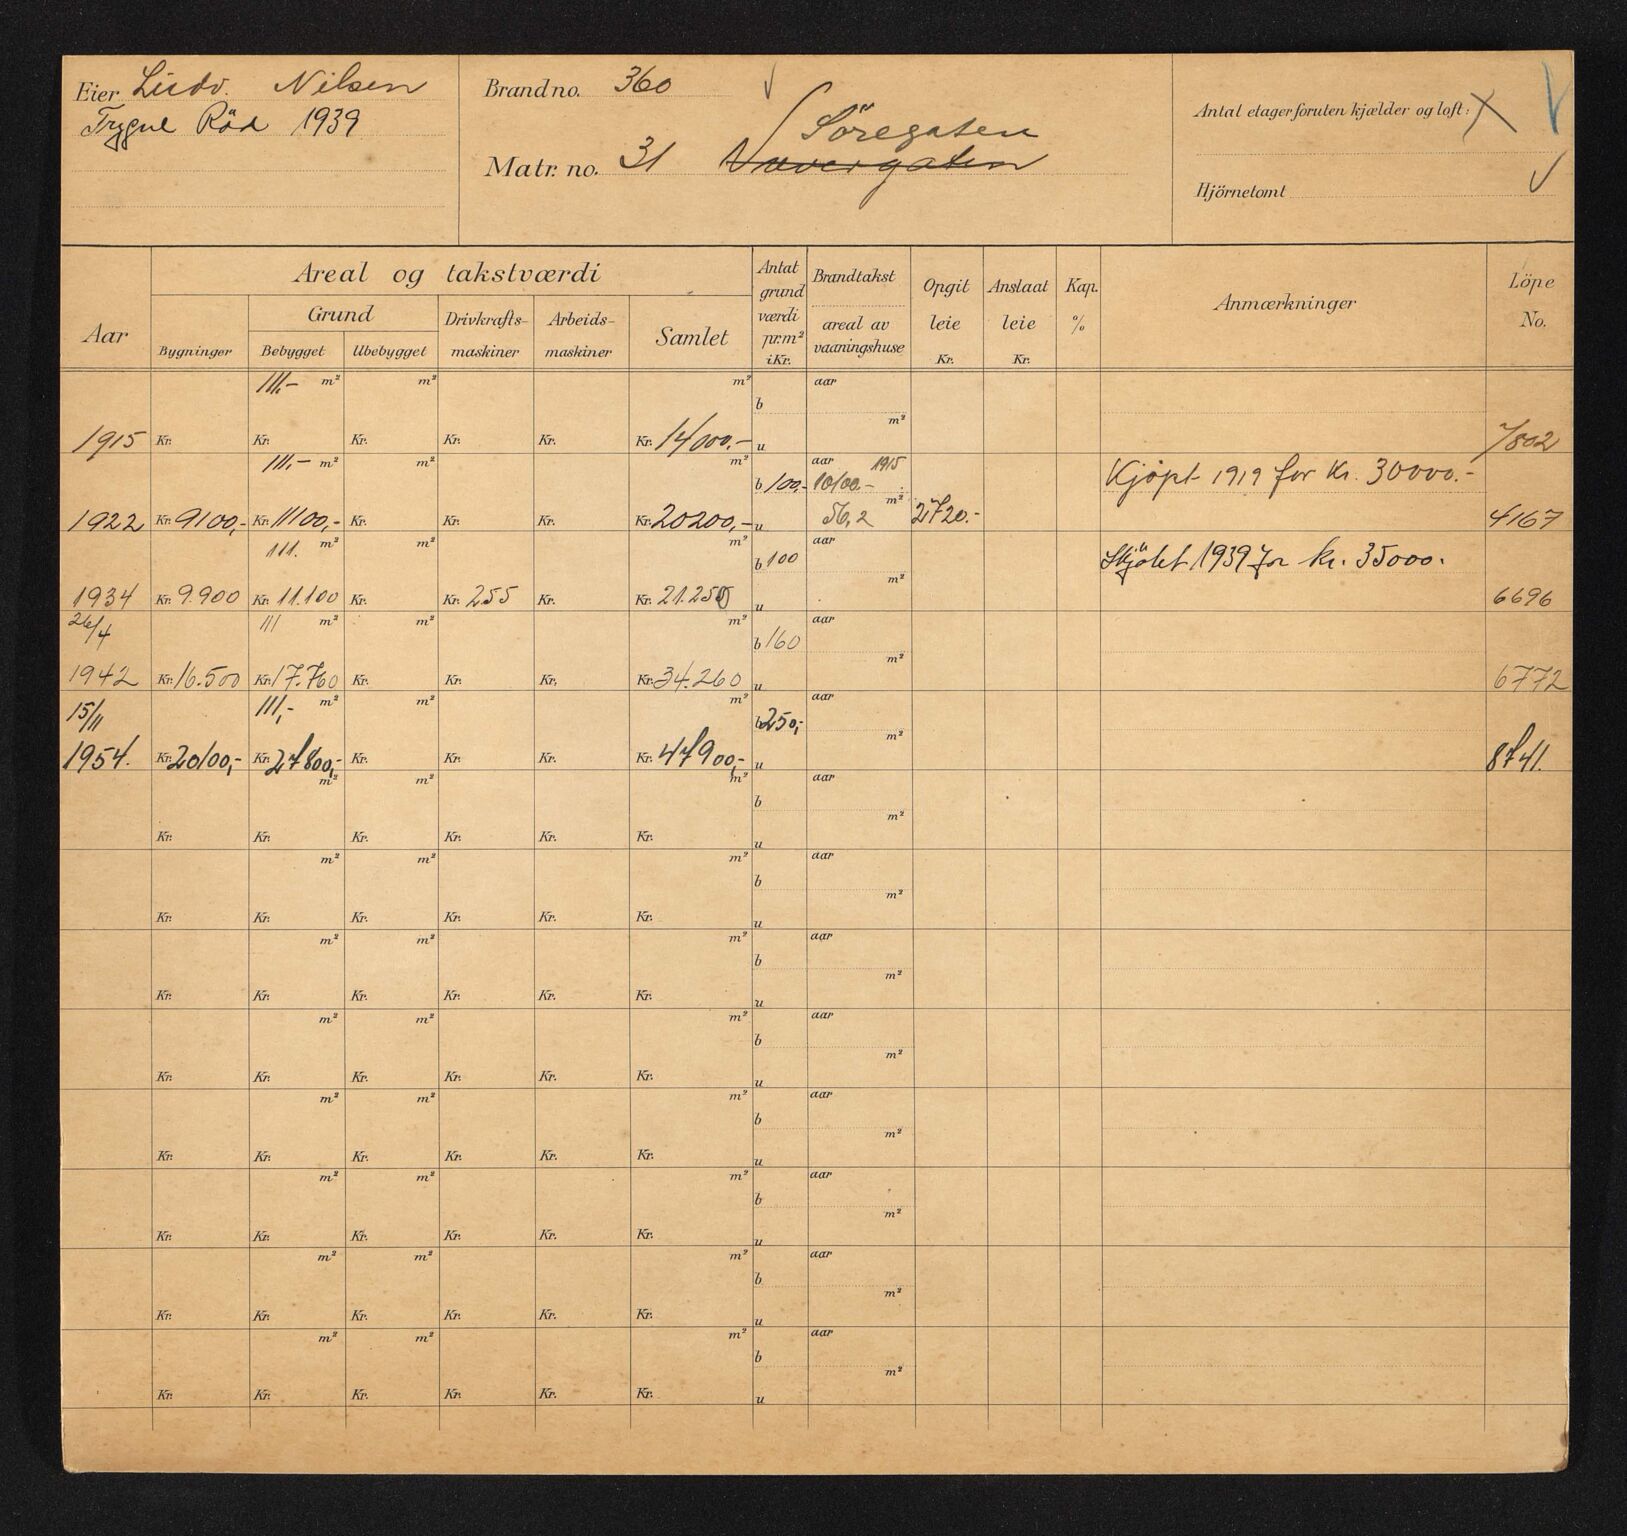 Eier Ludv. Nilsen
Trygve Röd 1939
Brandno. 360
Söregaten
Matr. no. 31
Antal etager foruten kjælder og loft:
Hjörnetomt
Aar
Areal og takstværdi
Bygninger
Grund
Bebygget Ubebygget
Drivkrafts-
maskiner
Arbeids-
maskiner
Samlet
Antat
grund
værdi
pr.m²
i Kr.
Brandtakst
areal av
vaaningshuse
Opgit
leie
Kr.
Anslaat
leie
Kr.
Kap.
%
Anmærkninger
Löpe
No.
111,- m² m² m² aar
b
m²
1915 Kr. Kr. Kr. Kr. Kr. Kr. 14000,- u 7802
111,- m² m² m² aar 1915
b 100,- 10100.- Kjöpt 1919 for Kr. 30000.-
m²
1922 Kr. 9100,- Kr. 11100,- Kr. Kr. Kr. Kr. 20200,- u 56,2 2720.- 4167
111. m² m² m² aar
b 100 Skjötet 1939 for kr. 35000.
m²
1934 Kr. 9.900 Kr. 11.100 Kr. Kr. 255 Kr. Kr. 21.255 u 6696
26/4 111 m² m² m² aar
b 160
m²
1942 Kr. 16.500 Kr. 17.760 Kr. Kr. Kr. Kr. 34.260 u 6772
15/11 111,- m² m² m² aar
b 250,-
m²
1954. Kr. 20100,- Kr. 27800,- Kr. Kr. Kr. Kr. 47900,- u 8741.
m² m² m² aar
b
m²
Kr. Kr. Kr. Kr. Kr. Kr. u
m² m² m² aar
b
m²
Kr. Kr. Kr. Kr. Kr. Kr. u
m² m² m² aar
b
m²
Kr. Kr. Kr. Kr. Kr. Kr. u
m² m² m² aar
b
m²
Kr. Kr. Kr. Kr. Kr. Kr. u
m² m² m² aar
b
m²
Kr. Kr. Kr. Kr. Kr. Kr. u
m² m² m² aar
b
m²
Kr. Kr. Kr. Kr. Kr. Kr. u
m² m² m² aar
b
m²
Kr. Kr. Kr. Kr. Kr. Kr. u
m² m² m² aar
b
m²
Kr. Kr. Kr. Kr. Kr. Kr. u